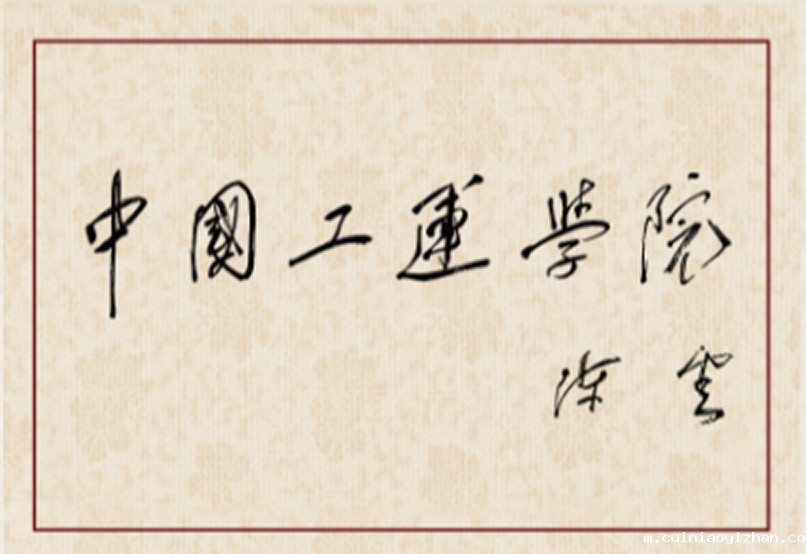 中國工運學院
陈雲
m.cuiniaoyizhan.co